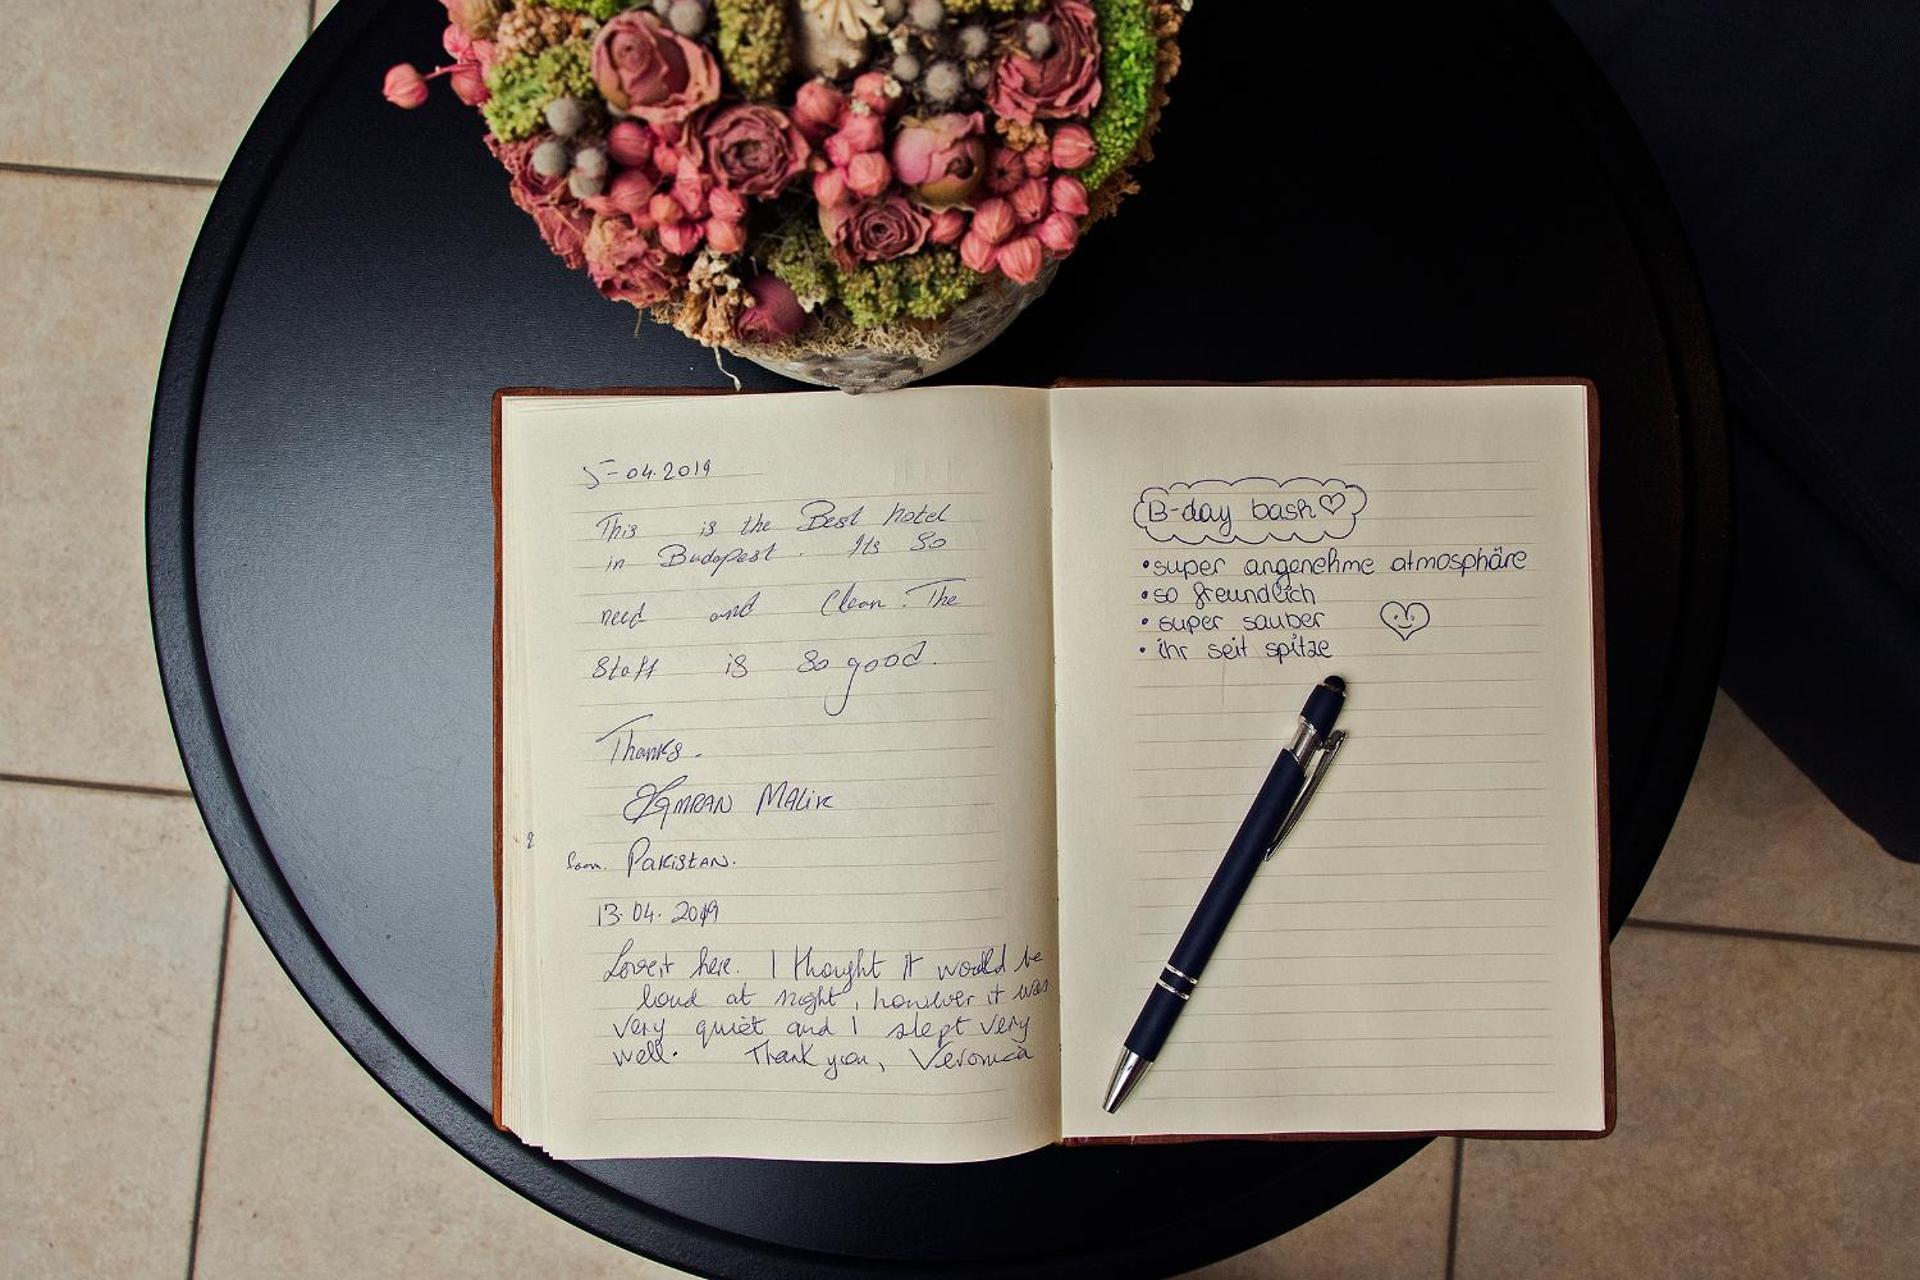 5-04.2019
This is the Best hotel
in Budapest. Its So
need and Clean. The
Staff is so good.
Thanks.
KAMRAN MALIK
from. PAKISTAN.
13.04.2019
Love it here. I thought it would be
loud at night, however it was
very quiet and I slept very
well. Thank you, Veronica
B-day bash
•super angenehme atmosphäre
•so freundlich
•super sauber
•ihr seit spitze